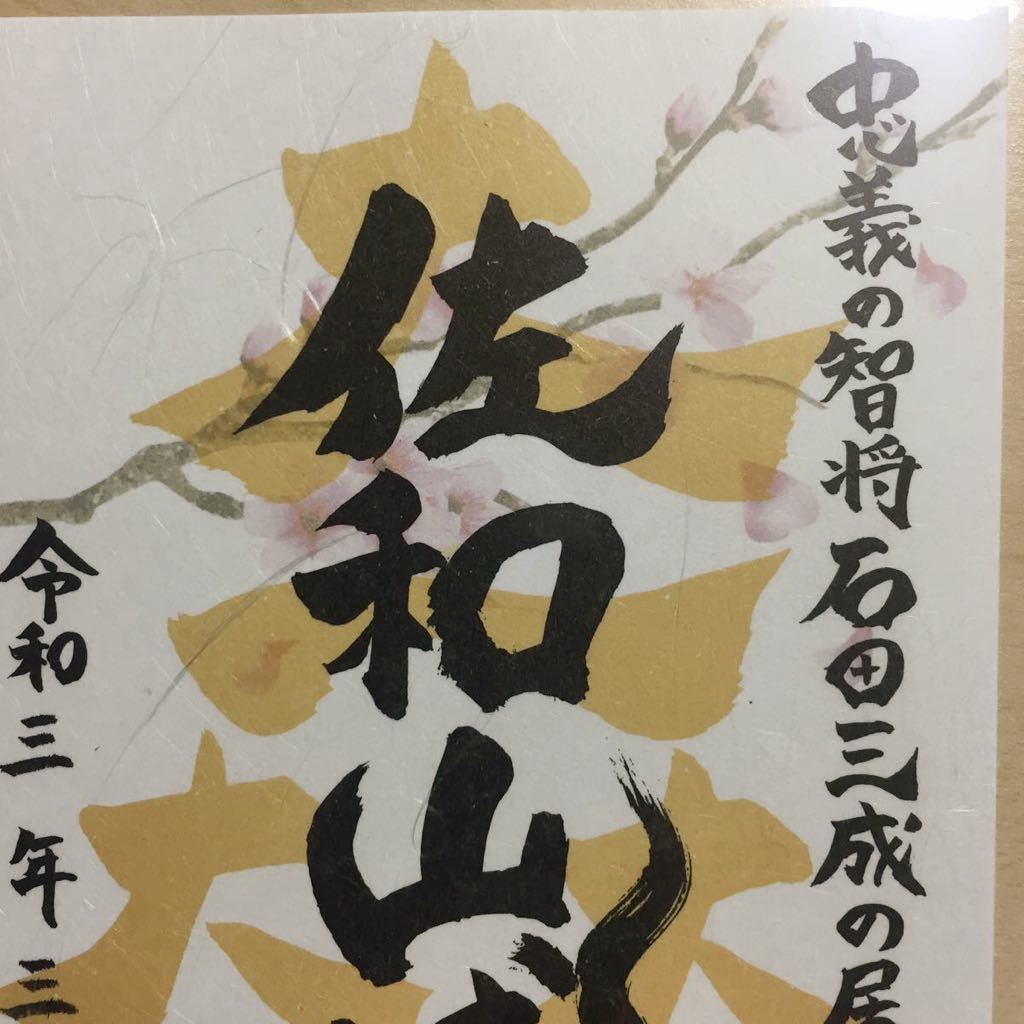 忠義の智将 石田三成の居
佐和山
令和三年三